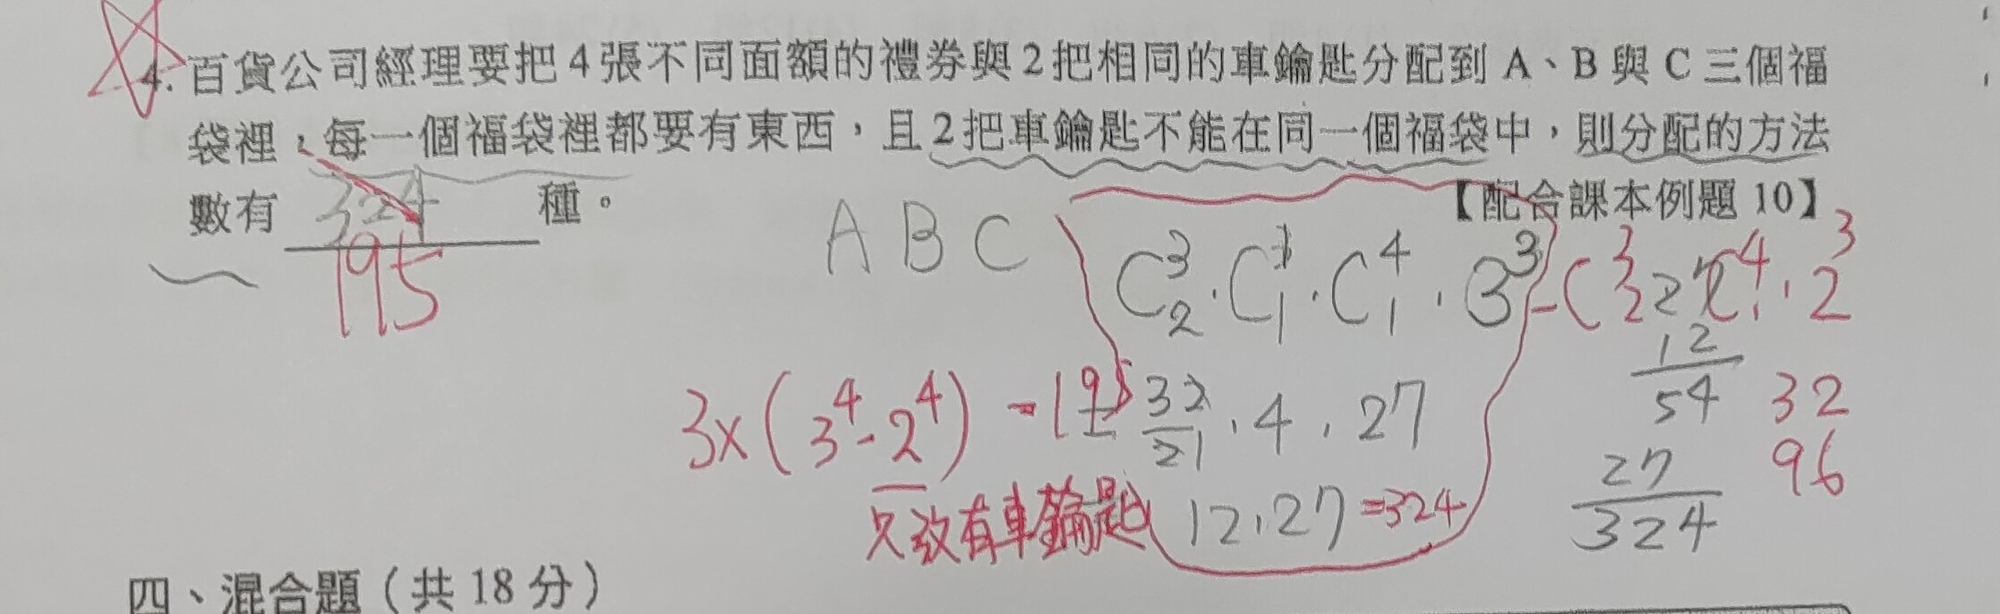 4. 百貨公司經理要把4張不同面額的禮券與2把相同的車鑰匙分配到 A、B 與 C 三個福
袋裡，每一個福袋裡都要有東西，且2把車鑰匙不能在同一個福袋中，則分配的方法
數有 324 種。
【配合課本例題 10】
195
A B C
C³₂ · C¹₁ · C⁴₁ · 3³ - C³₂ C⁴₁ · 2³
27
12
54
3x(3⁴-2⁴) = 195
32
21 · 4 · 27
只放有車鑰匙
12 · 27 = 324
27
324
32
96
四、混合題（共 18 分）